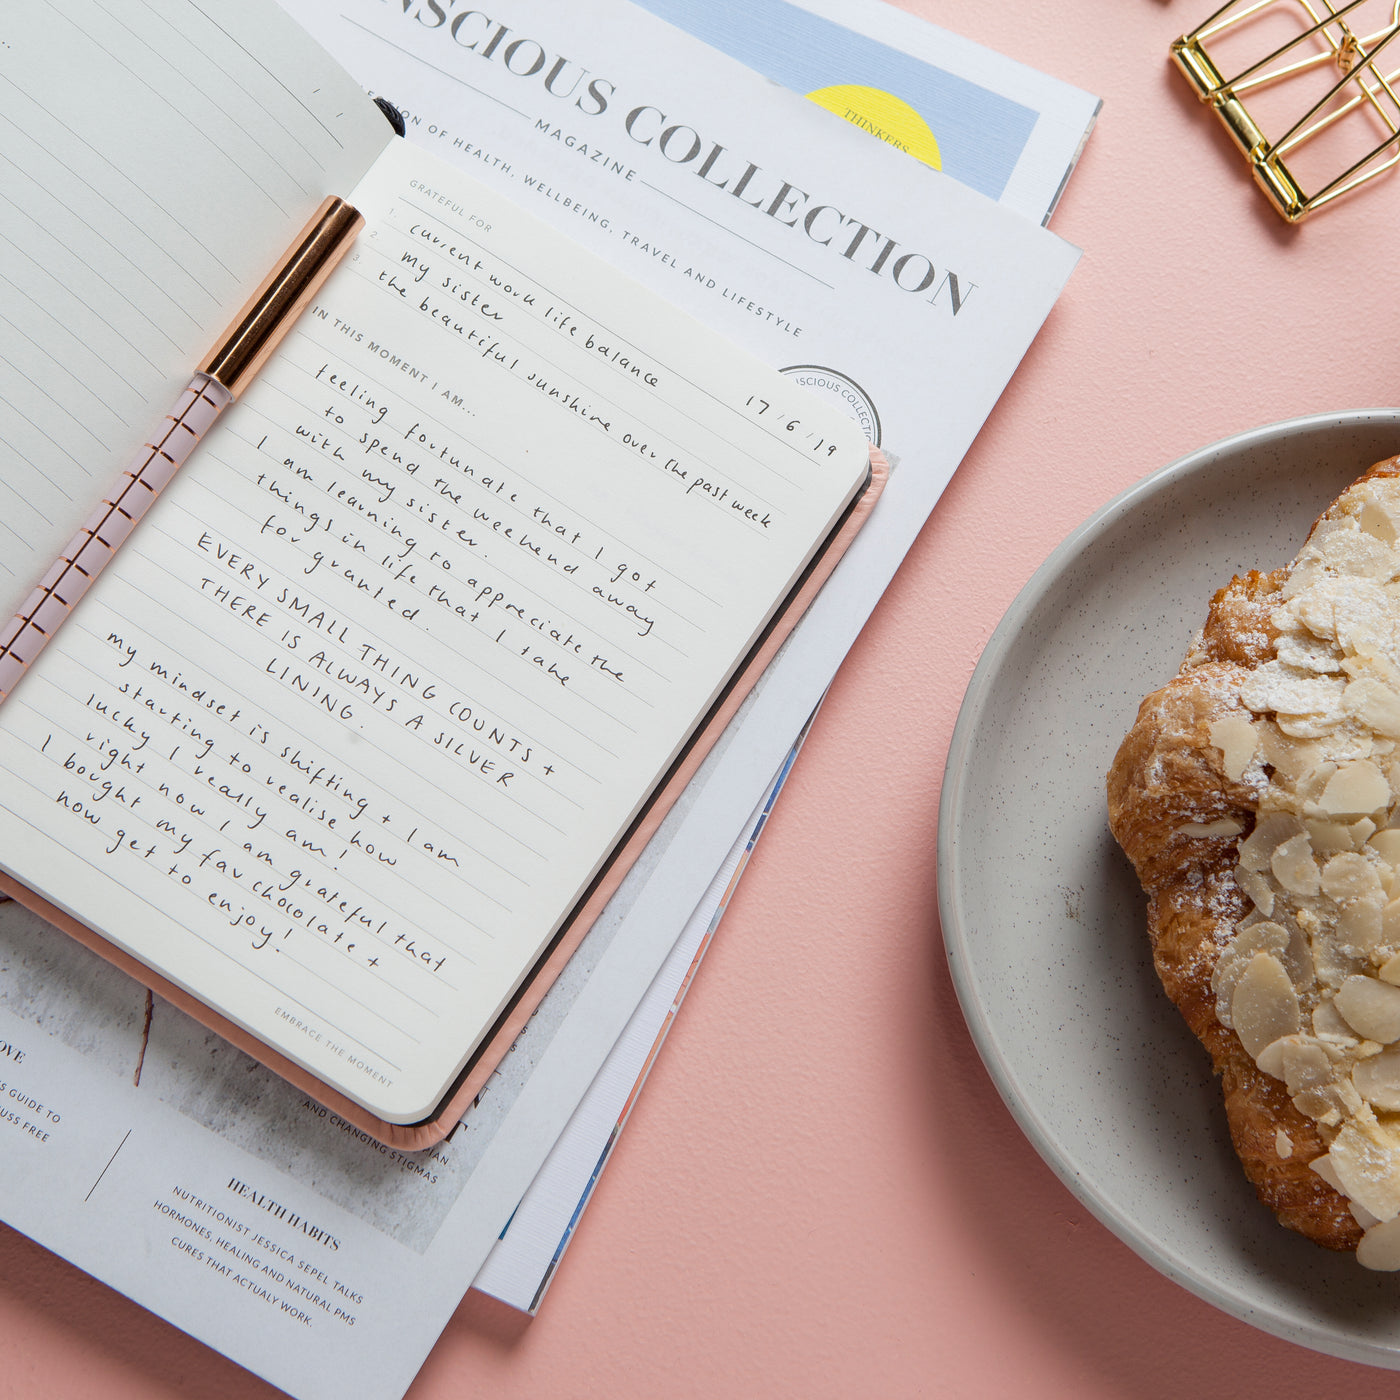 NSCIOUS COLLECTION
MAGAZINE
ECTION OF HEALTH, WELLBEING, TRAVEL AND LIFESTYLE
THINKERS
SCIOUS COLLECTI
GRATEFUL FOR
1. current work life balance
2. my sister
3. the beautiful sunshine over the past week
17/6/19
IN THIS MOMENT I AM...
feeling fortunate that I got
to spend the weekend away
with my sister.
I am learning to appreciate the
things in life that I take
for granted.
EVERY SMALL THING COUNTS +
THERE IS ALWAYS A SILVER
LINING.
my mindset is shifting + I am
starting to realise how
lucky I really am!
right now I am grateful that
I bought my fav chocolate +
now get to enjoy!
EMBRACE THE MOMENT
OVE
S GUIDE TO
USS FREE
AND CHANGING STIGMAS
HEALTH HABITS
NUTRITIONIST JESSICA SEPEL TALKS
HORMONES, HEALING AND NATURAL PMS
CURES THAT ACTUALY WORK.